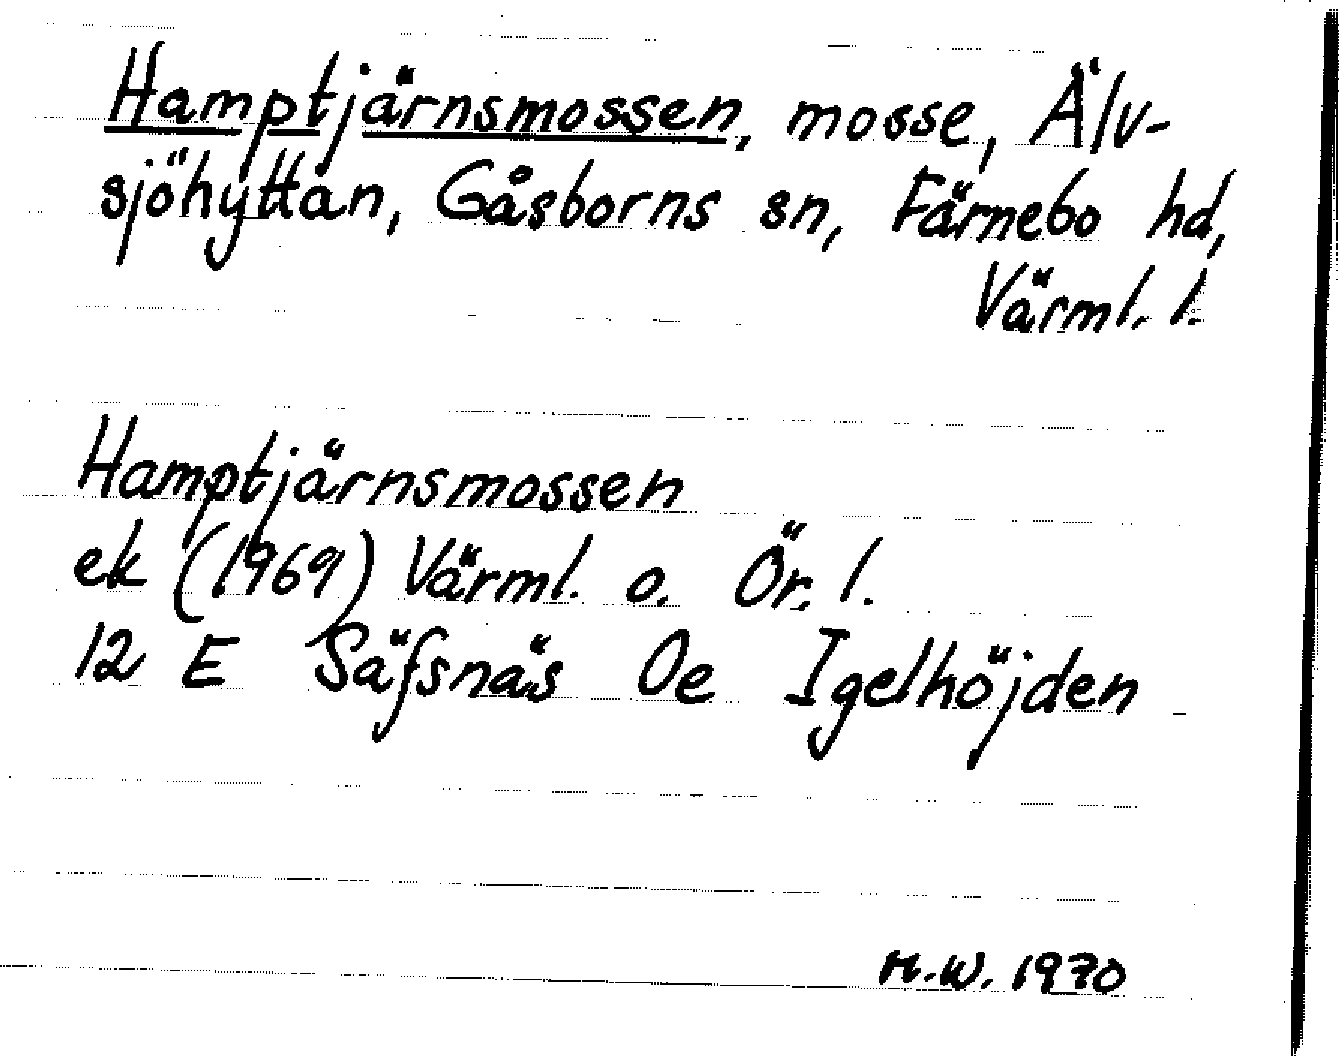 Hamptjärnsmossen, mosse, Älv-
sjöhyttan, Gåsborns sn, Färnebo hd,
Värml. l.
Hamptjärnsmossen
ek (1969) Värml. o. Ör. l.
12 E Säfsnäs 0e Igelhöjden
M.W. 1970